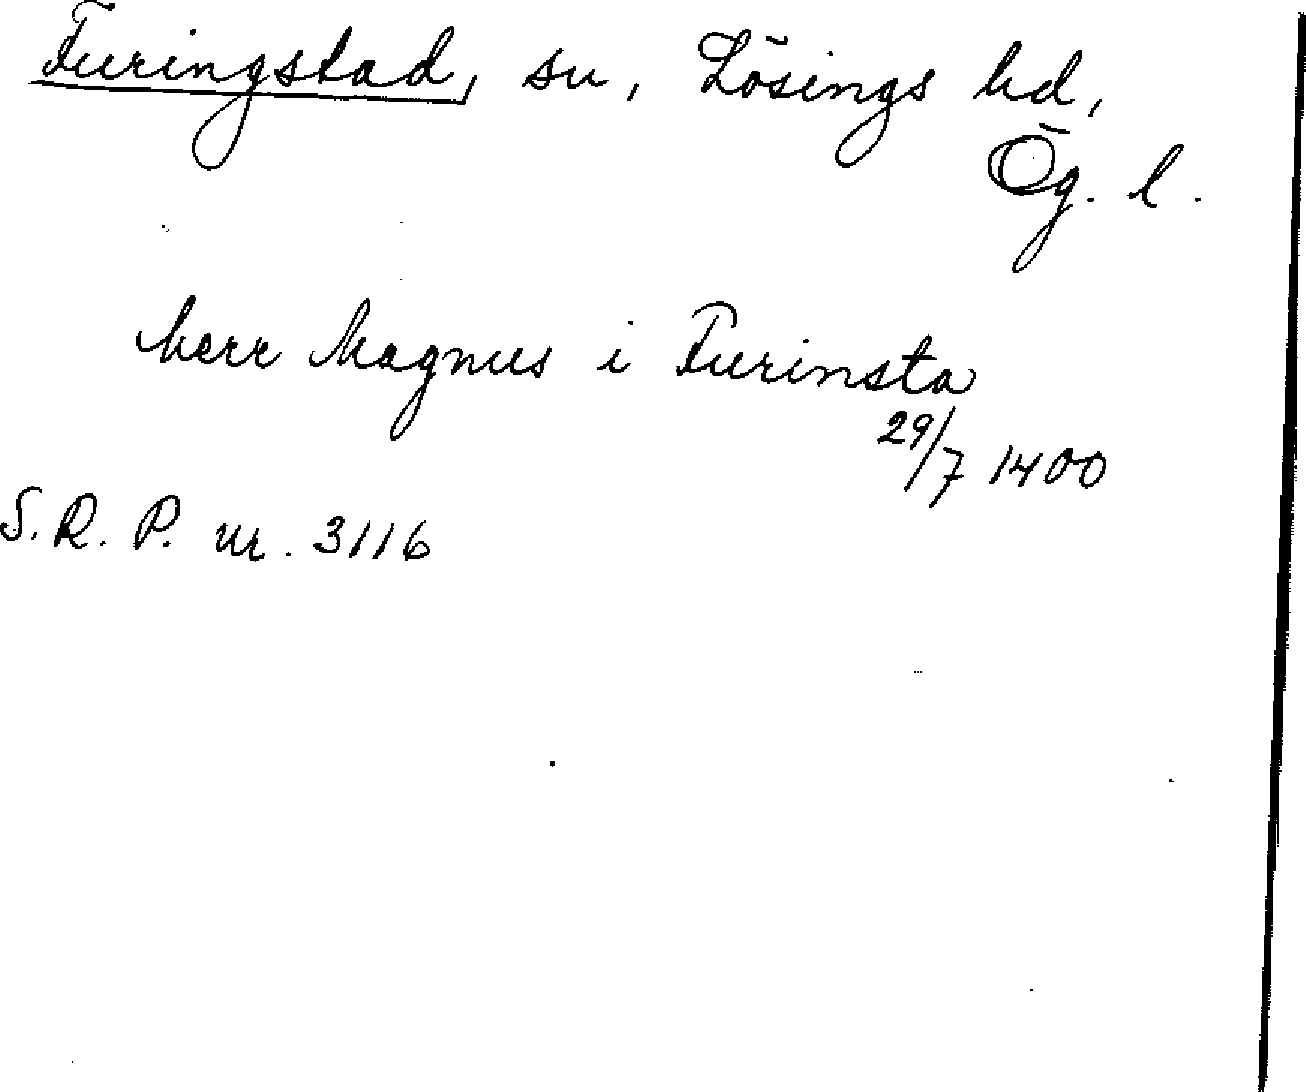 Furingstad, sn, Lösings hd,
Ög. l.
herr Magnus i Furinsta
29/7 1400
S. R. P. nr. 3116